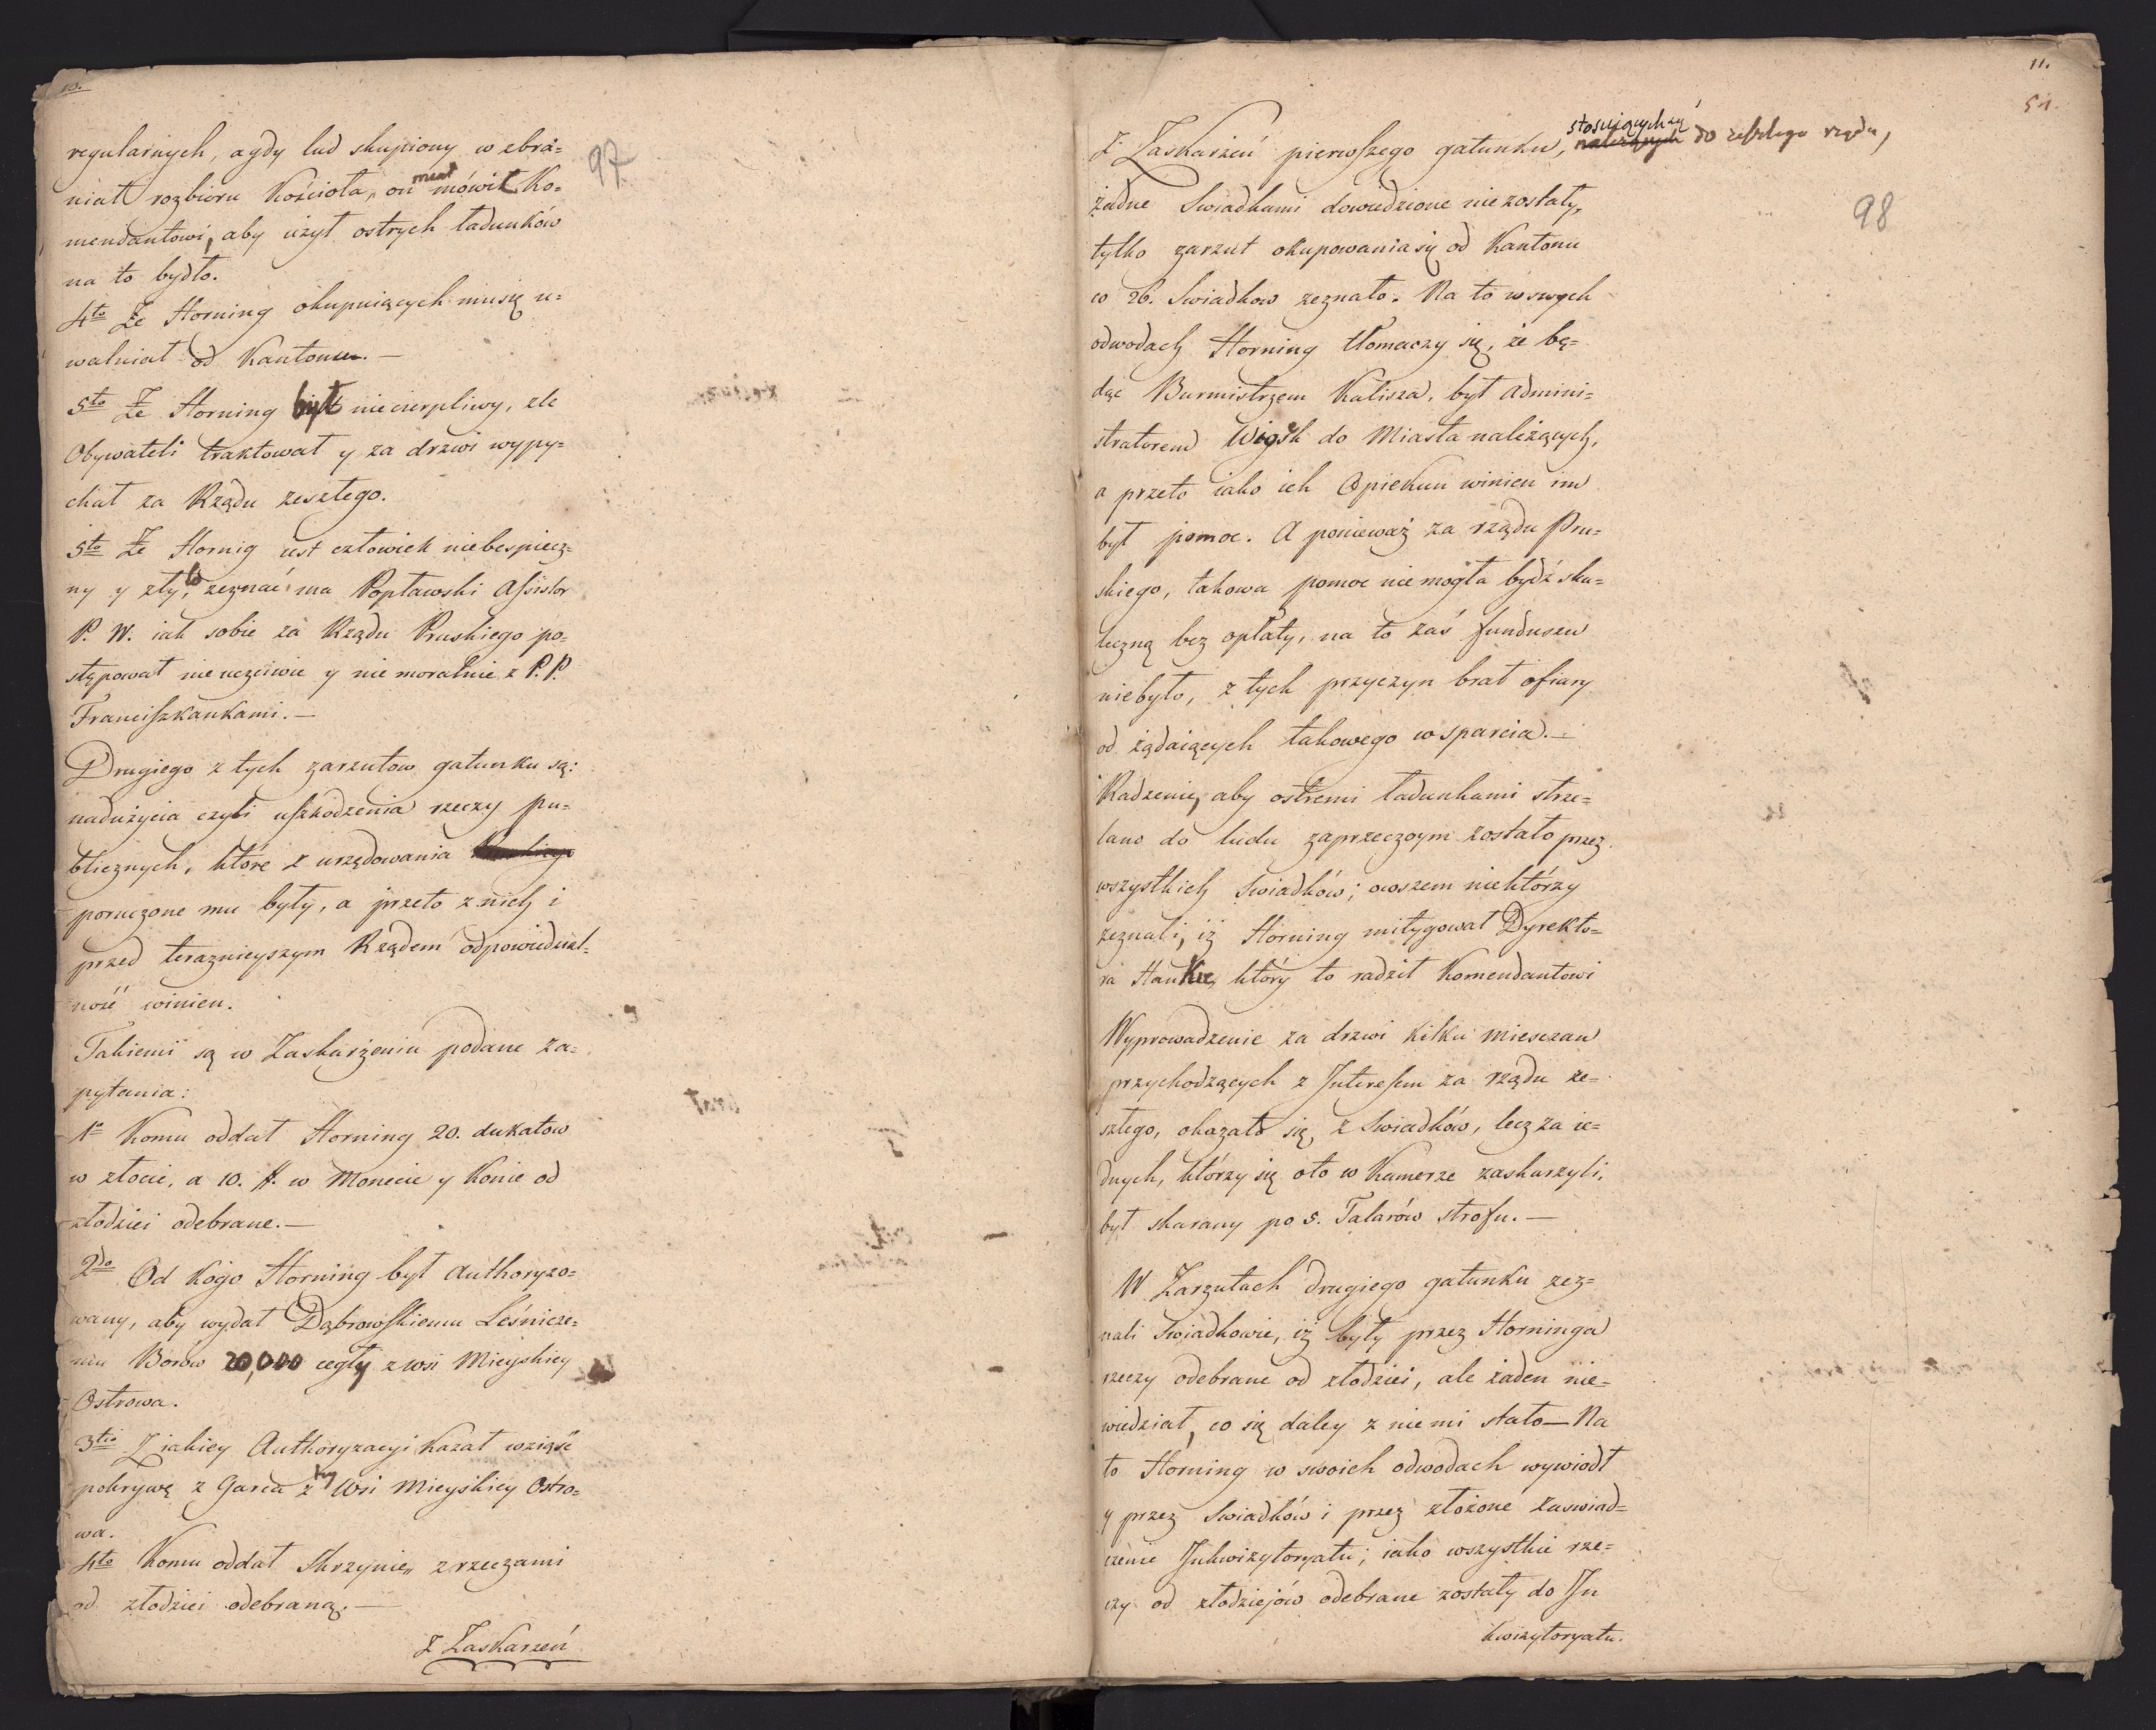 10.
97
regularnych, a gdy lud skupiony w zbra=
niał rozbioru Kościoła, on miał mówił Ko=
mendantowi, aby użył ostrych ładunków
na to bydło.
4to Że Horning okupuiących musię u=
walniał od Kantonu. —
5to Że Horning był niecierpliwy, zle
Obywateli traktował y za drzwi wypy=
chał za Rządu zeszłego.
5to Że Hornig iest człowiek niebespiecz=
ny y zły, to zeznać ma Popławski Assistor
P. W. iak sobie za Rządu Pruskiego po=
stępował nieuczciwie y nie moralnie z P. P.
Franciszkankami. —
Drugiego z tych zarzutow gatunku są:
nadużycia czyli uszkodzenia rzeczy pu=
blicznych, które z urzędowania Pruskiego
poruczone mu były, a przeto z nich i
przed teraznieyszym Rządem odpowiedzial=
ność winien.
Takiemi są w Zaskarżeniu podane za=
pytania:
1o Komu oddał Horning 20. dukatow
w złocie, a 10. f. w Monecie y Konie od
złodziei odebrane. —
2do Od kogo Horning był authoryzo=
wany, aby wydał Dąbrowskiemu Leśnicze=
mu Borów 20,000 cegły z wsi Mieyskiey
Ostrowa.
3tio Z iakiey Authoryzacyi Kazał wziąść
pokrywę z Garca z tey Wsi Mieyskiey Ostro=
wa.
4to Komu oddał Skrzynię z rzeczami
od złodziei odebraną. —
Z Zaskarzeń
11.
51.
98
Z Zaskarzeń pierwszego gatunku, należących stosuiących się do zeszłego rządu,
żadne Swiadkami dowiedzione nie zostały,
tylko zarzut okupowania się od Kantonu
co 26. Swiadkow zeznało. Na to w swych
odwodach Horning tłomaczy się, że bę=
dąc Burmistrzem Kalisza, był admini=
stratorem Wiosk do Miasta należących,
a przeto iako ich Opiekun winien im
był pomoc. A ponieważ za rządu Pru=
skiego, takowa pomoc nie mogła bydź sku=
teczną bez opłaty, na to zaś funduszu
niebyło, z tych przyczyn brał ofiary
od żądaiących takowego wsparcia. —
Radzenie, aby ostremi ładunkami strze=
lano do ludu zaprzeczoym zostało przez
wszystkich swiadków; owszem niektórzy
zeznali, iż Horning mitygował Dyrekto=
ra Hanke, który to radził Komendantowi
Wyprowadzenie za drzwi kilku mieszczan
przychodzących z Interessem za rządu ze=
szłego, okazało się, z Swiadków, lecz za ie=
dnych, którzy się oto w Kamerze zaskarzyli,
był skarany po 5. Talarów strofu. —
W Zarzutach drugiego gatunku zez=
nali Swiadkowie, iż były przez Horninga
rzeczy odebrane od złodziei, ale żaden nie=
wiedział, co się daley z niemi stało — Na
to Horning w swoich odwodach wywiódł
y przez Swiadków i przez złożone zaswiad=
czenie Inkwizytoryatu; iako wszystkie rze=
czy od złodziejów odebrane zostały do In
kwizytoryatu.